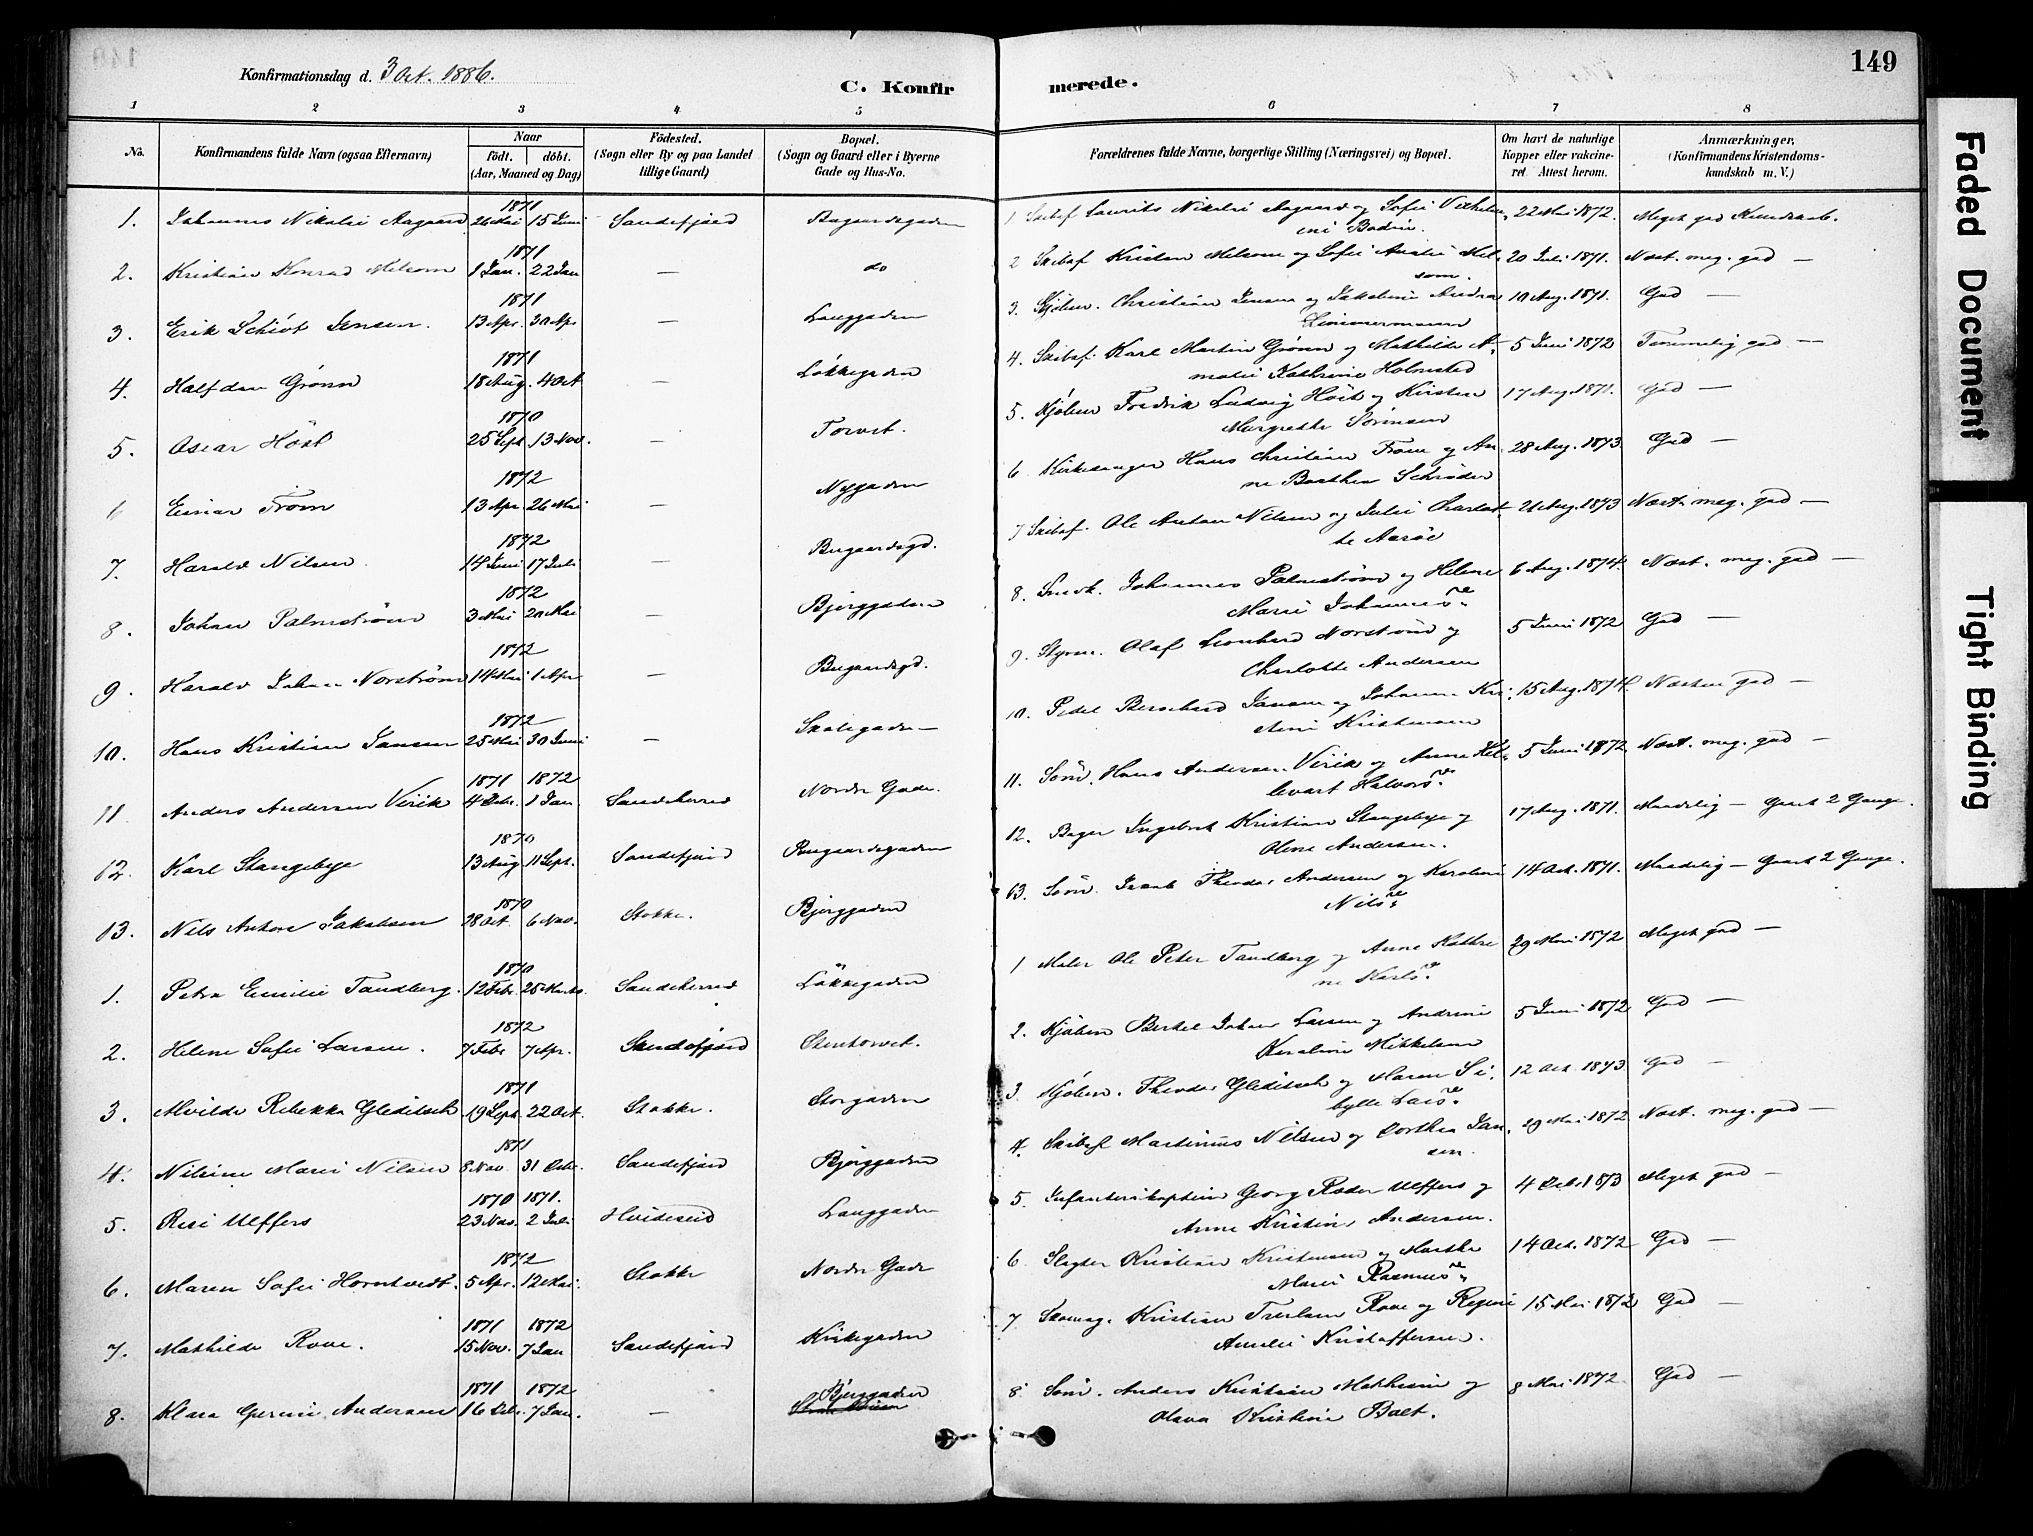 149
Konfirmationsdag d. 3 Oct. 1886.
C. Konfirmerede.
1 2 3 4 5 6 7 8
No. Konfirmandens fulde Navn (ogsaa Efternavn) Naar født. døbt. (Aar, Maaned og Dag) Födested. (Sogn eller By og paa Landet tillige Gaard) Bopæl. (Sogn og Gaard eller i Byerne Gade og Hus-No. Forældrenes fulde Navne, borgerlige Stilling (Næringsvei) og Bopæl. Om havt de naturlige Kopper eller vakcineret. Attest herom. Anmærkninger. (Konfirmandens Kristendomskundskab m. V.)
1. Johannes Nikolai Aagaard 1871 26 Mai 15 Juni Sandefjord Bugaardsgaden 1 Skibsf. Laurits Nikolai Aagaard og Sofie Vilhelmine Bodin 22 Mai 1872. Meget god Kundskab.
2. Kristian Konrad Melsom 1871 1 Jan. 22 Jan — do 2 Skibsf. Kristian Melsom og Sofie Amalie Melsom. 20 Juli 1871. Næst. meg. god —
3. Erik Schiöt Jensen. 1871 13 Apr. 30 Apr — Langgaden 3. Kjøbm. Christian Jensen og Jakobine Andrea Zimmermann 10 Aug. 1871. God —
4. Halfdan Grønn 1871 18 Aug. 4 Oct — Løkkegaden 4. Skibsf. Karl Martin Grønn og Mathilde Amalie Kathrine Holmsted 5 Juni 1872 Temmelig god —
5. Oscar Höst 1870 25 Sept. 13 Nov. — Torvet. 5. Kjøbm Fredrik Ludvig Höst og Kirsten Margrethe Sørensen 17 Aug. 1871. God —
6 Einar Trøm 1872 13 Apr. 26 Mai — Nygaden 6 Kirkesanger Hans Christian Trøm og Anne Barthea Schrøder 28 Aug. 1873 God —
7. Harald Nilsen. 1872 14 Juni 17 Juli — Bugaardsgd. 7 Skibsf. Ole Anton Nilsen og Julie Charlotte Aarøe 21 Aug. 1873 Næst. meg. god —
8. Johan Palmstrøm 1872 3 Mai 20 Mai — Bjerggaden 8. Snedk. Johannes Palmstrøm og Helene Marie Johannesd. 6 Aug. 1874. Næst. meg. god —
9. Harald Johan Norstrøm 1872 14 Mai 1 Apr — Bugaardsgd. 9. Styrm. Olaf Leonhard Norstrøm og Charlotte Andersen 5 Juni 1872 God —
10. Hans Kristian Jansen 1872 25 Mai 30 Juni — Skolegaden 10. Pedel Bernhard Jansen og Johanne Kristine Kristensen 15 Aug. 1874. Næsten god —
11 Anders Andersen Virik 1871 1872 4 Debr. 1 Jan Sandeherred Nordre Gade. 11. Søm. Hans Andersen Virik og Anne Helevart Halvorsd. 5 Juni 1872 Næst. meg. god —
12. Karl Stangebye 1870 13 Aug 11 Sept. Sandefjord Bugaardsgaden 12. Bager Ingebret Kristian Stangebye og Oline Andersen. 17 Aug. 1871. Maadelig — Gaaet 2 Gange.
13. Nils Anton Jakobsen 1870 28 Oct. 6 Nov. Stokke. Bjerggaden 13. Søm. Isaak Theodor Andersen og Karoline Nilsd. 14 Oct. 1871. Maadelig — Gaaet 2 Gange.
1. Petra Emilie Tandberg. 1870 12 Febr. 25 Marts. Sandeherred Løkkegaden 1 Maler Ole Peter Tandberg og Anne Kathrine Karlsd. 29 Mai 1872 Meget god —
2. Helene Sofie Larsen. 1872 7 Febr 7 Apr. Sandefjord Stentorvet. 2. Kjøbm Bertel Johan Larsen og Andrine Karoline Mikkelsen 5 Juni 1872 God —
3. Alvilde Rebekka Gleditsch 1871 19 Sept. 22 Oct. Stokke. Storgaden 3 Kjøbm. Theodor Gleditsch og Maren Sibylle Larsd. 12 Oct. 1873 God —
4. Nilsine Marie Nilsen 1871 8 Nov. 31 Debr. Sandefjord Bjerggaden 4. Skibsf Martinius Nilsen og Dorthea Jansen. 29 Mai 1872 Næst. meg. god —
5. Resi Ulffers 1870 1871. 23 Nov. 2 Juli Hvideseid Langgaden 5. Infanterikaptein Georg Ulffers og Anne Kristine Andersen. 4 Debr. 1873 Meget god —
6. Maren Sofie Horntvedt. 1872 5 Apr. 12 Mai. Stokke Nordre Gade 6 Slagter Kristian Kristensen og Marthe Marie Rasmusd. 14 Oct. 1872 God —
7. Mathilde Rove. 1871 1872 15 Nov. 7 Jan Sandefjord Kirkegaden 7 Skomag. Kristian Rove og Regine Amalie Kristoffersen. 15 Mai 1872 God —
8. Klara Gurine Andersen 1871 1872 16 Debr. 7 Jan. — Bjerggaden 8. Søm. Anders Kristian Mathisen og Olava Kristine Bolt. 8 Mai 1872. God —
Faded Document
Tight Binding